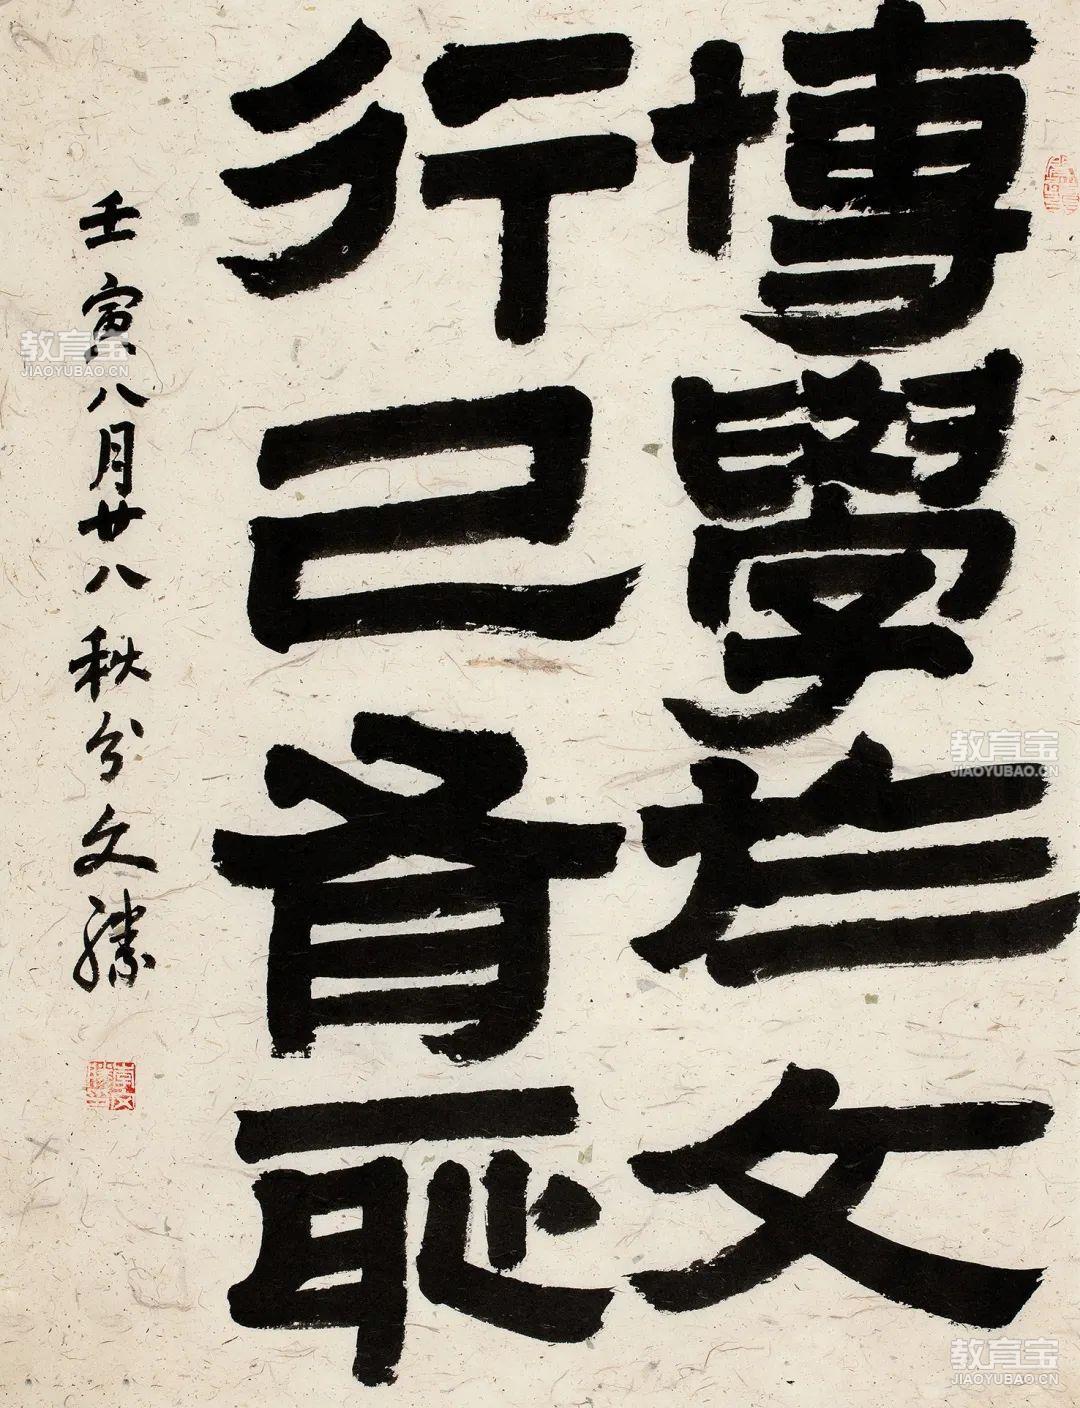 博學於文
行己有恥
壬寅八月廿八秋分文
教育宝
JIAOYUBAO.CN
教育宝
JIAOYUBAO.CN
教育宝
JIAOYUBAO.CN